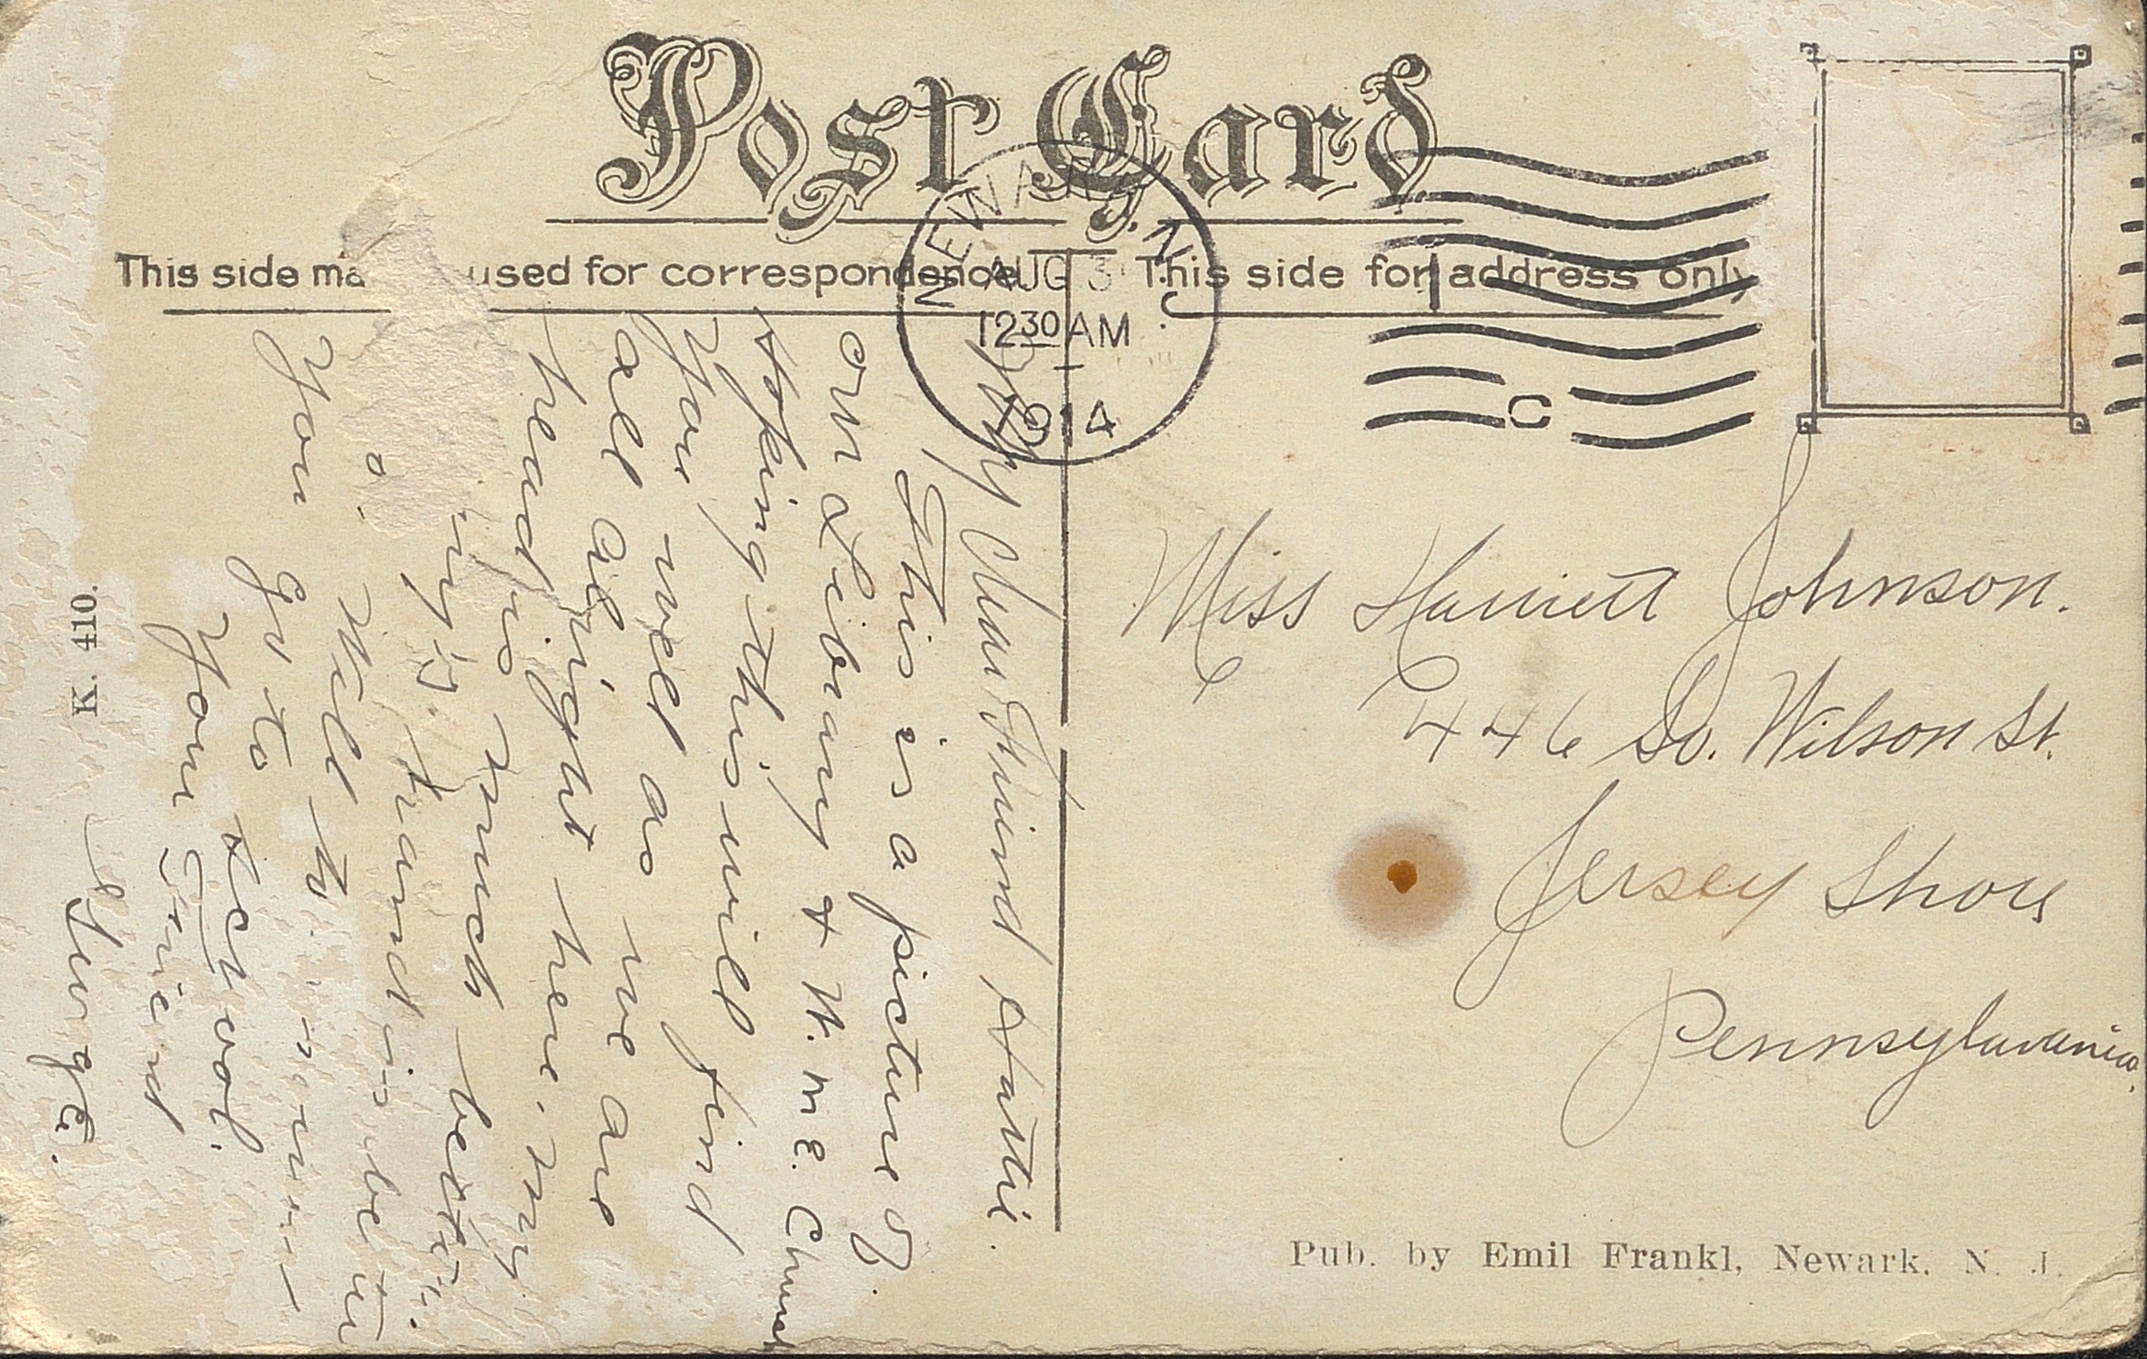 Post Card
This side ma used for correspondence
This side for address only
NEWARK, N.J.
AUG 3
12 30 AM
1914
C
My Dear Friend Hattie.
This is a picture of
our Library & M. E. Church
Hoping this will find
You well as we are
all all right here. My
head is much better.
hand is better
Will
You go to school.
Your Friend
George.
K. 410.
Miss Harriett Johnson.
446 So. Wilson St.
Jersey Shore
Pennsylvania.
Pub. by Emil Frankl, Newark, N. J.